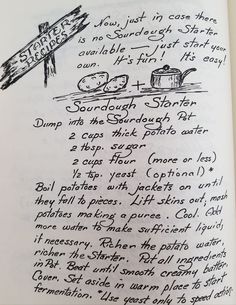 STARTER
RECIPES
Now, just in case there
is no Sourdough Starter
available — just start your
own. It's fun! It's easy!
+
Sourdough Starter
Dump into the Sourdough Pot
2 cups thick potato water
2 tbsp. sugar
2 cups flour (more or less)
1/2 tsp. yeast (optional)*
Boil potatoes with jackets on until
they fall to pieces. Lift skins out, mash
potatoes making a puree. Cool. Add
more water to make sufficient liquid,
if necessary. Richer the potato water,
richer the Starter. Put all ingredients
in Pot. Beat until smooth creamy batter.
Cover. Set aside in warm place to start
fermentation. *Use yeast only to speed action.